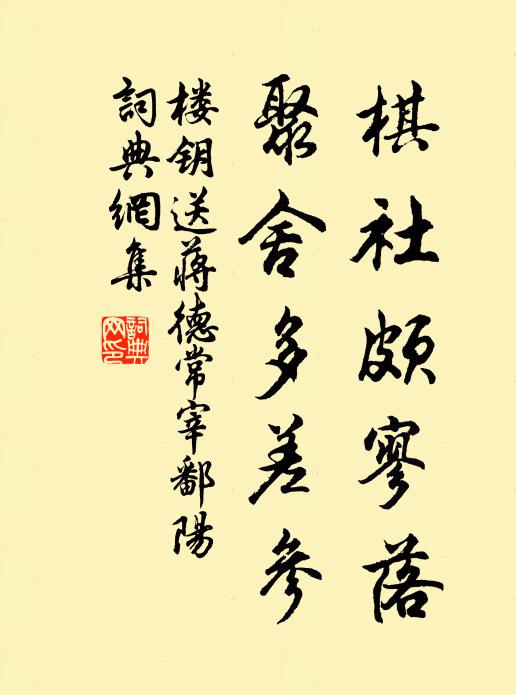 棋社頗寥落
聚舍多差參
楼钥送蔣德常宰鄱陽
詞典網集
詞典网印